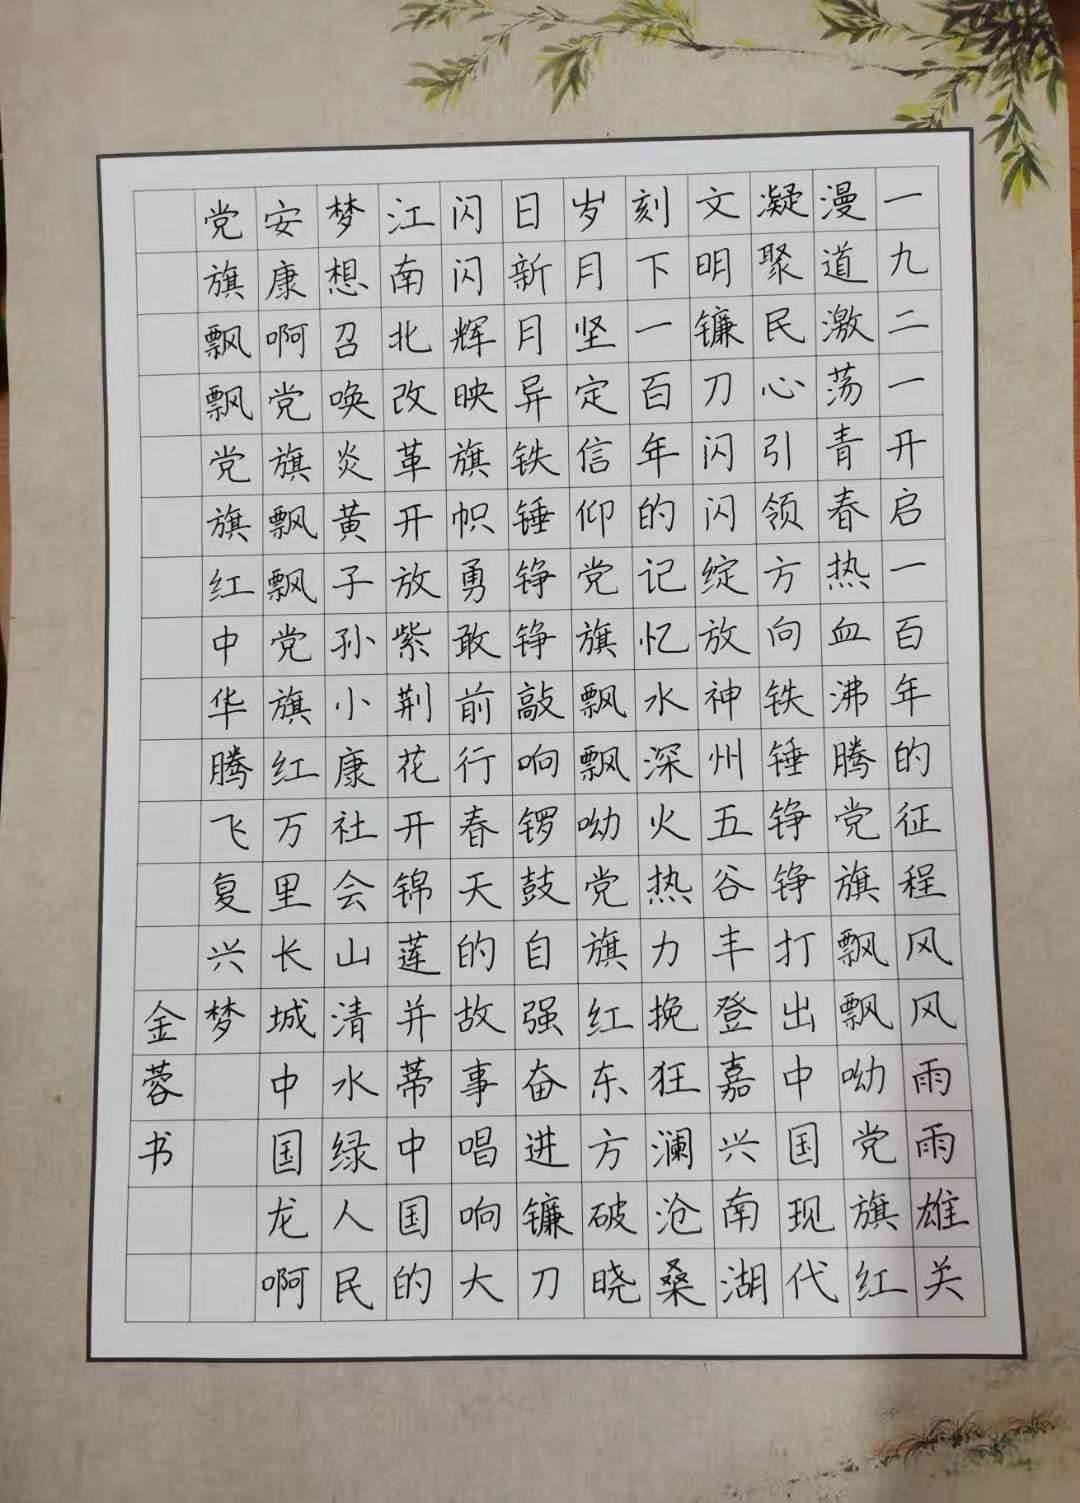 一九二一开启一百年的征程风风雨雨雄关
漫道激荡青春热血沸腾党旗飘飘呦党旗红
凝聚民心引领方向铁锤铮铮打出中国现代
文明镰刀闪闪绽放神州五谷丰登嘉兴南湖
刻下一百年的记忆水深火热力挽狂澜沧桑
岁月坚定信仰党旗飘飘呦党旗红东方破晓
日新月异铁锤铮铮敲响锣鼓自强奋进镰刀
闪闪辉映旗帜勇敢前行春天的故事唱响大
江南北改革开放紫荆花开锦莲并蒂中国的
梦想召唤炎黄子孙小康社会山清水绿人民
安康啊党旗飘飘党旗红万里长城中国龙啊
党旗飘飘党旗红中华腾飞复兴梦
金蓉书